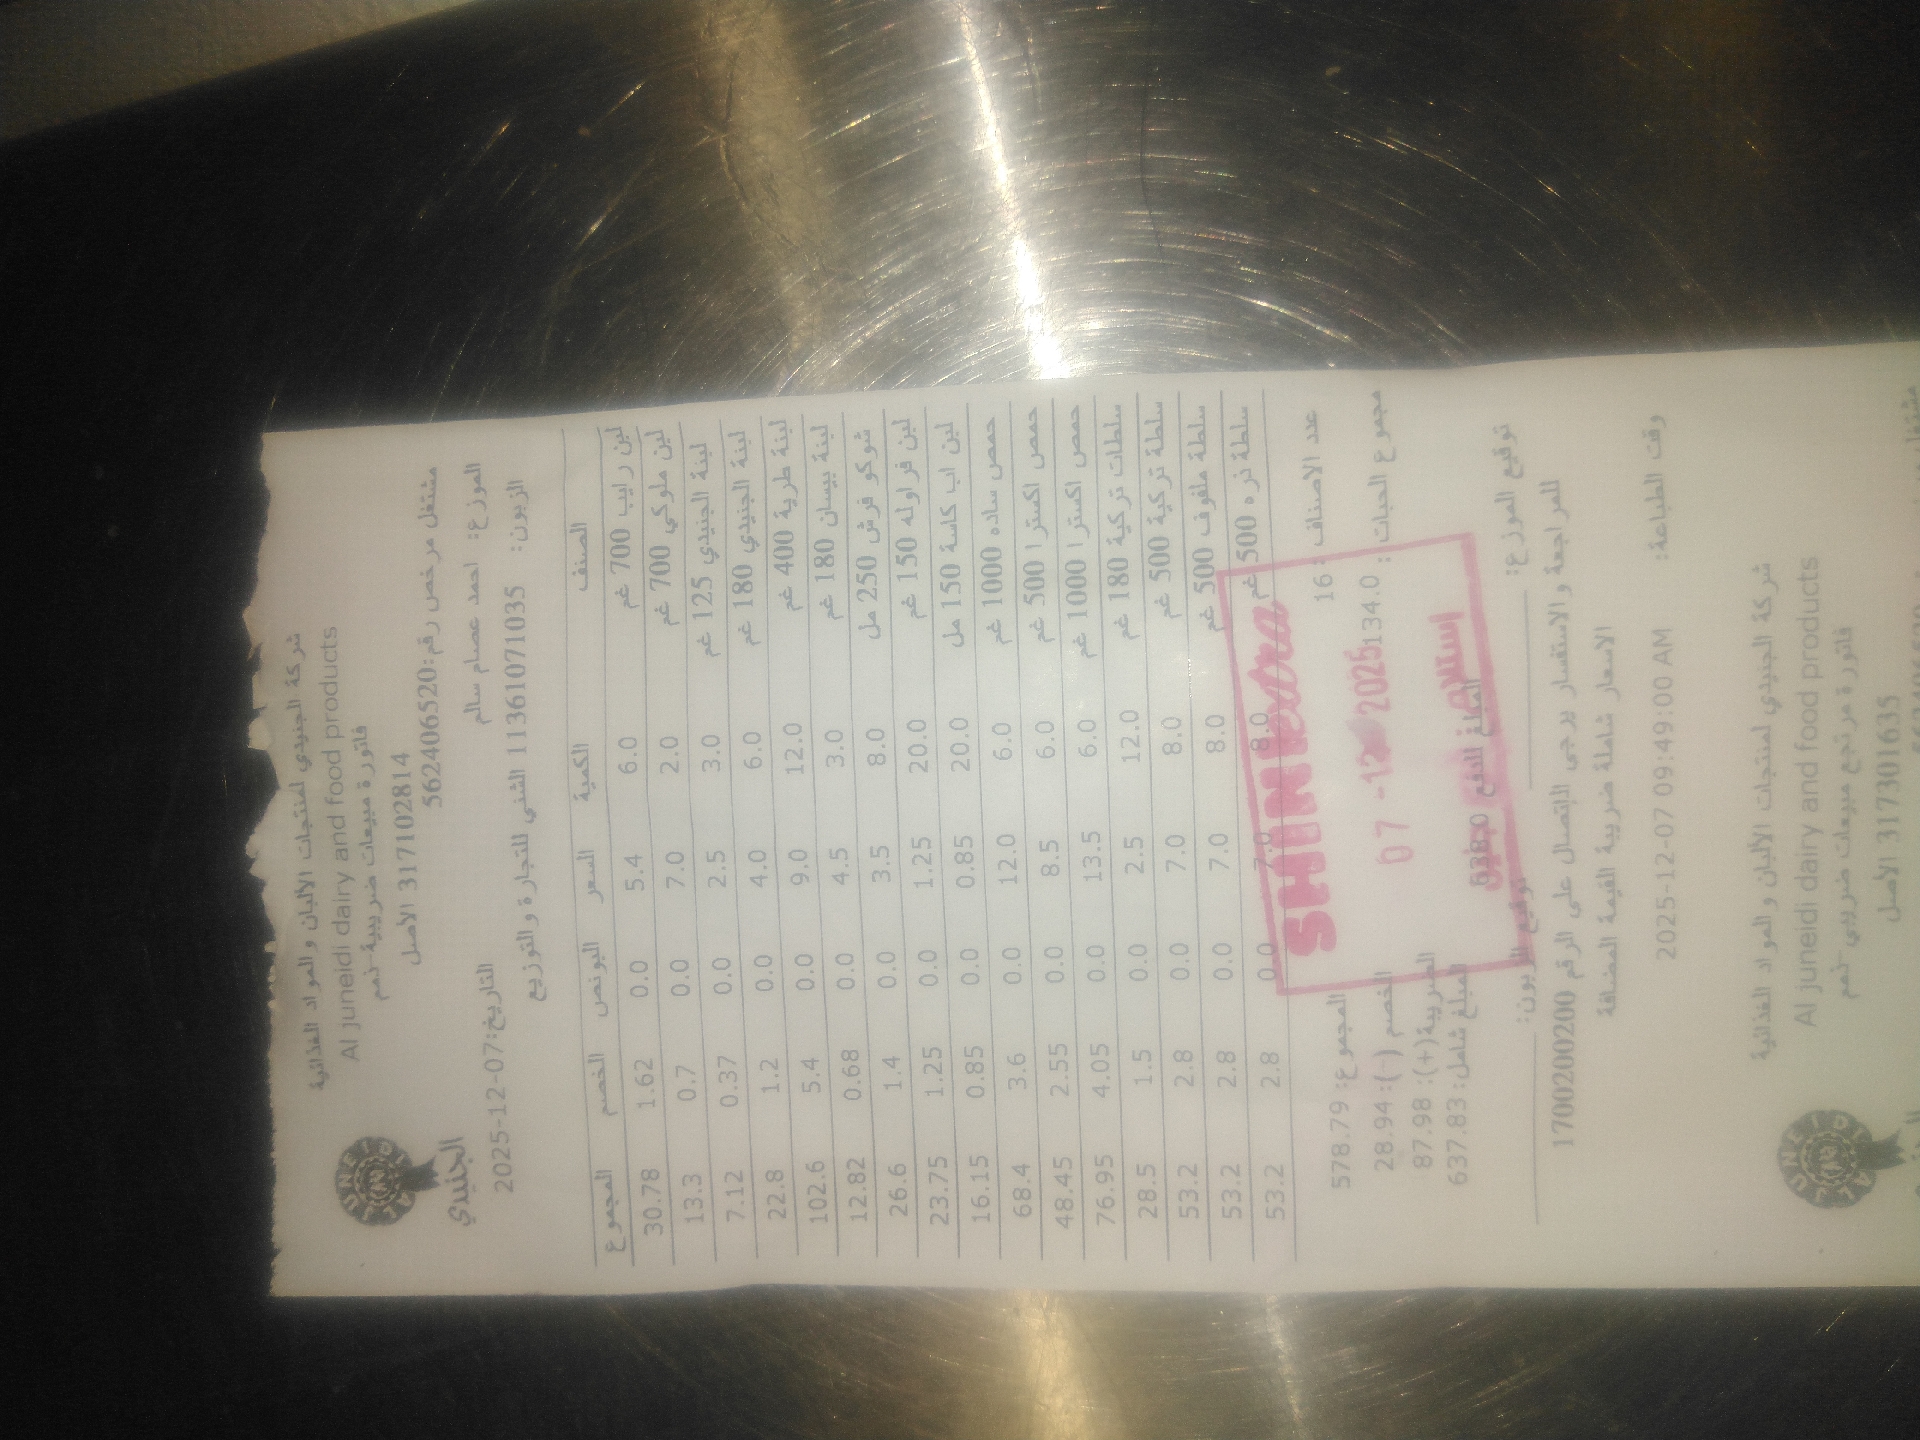 شركة الجنيدي لمنتجات الألبان و المواد الغذائية
Al juneidi dairy and food products
فاتورة مبيعات ضريبية-ذمم
317102814 الأصل
مشتغل مرخص رقم:562406520
AL JUNEIDI
الجنيدي
الموزع: احمد عصام سالم
التاريخ:2025-12-07
الزبون: 11361071035 الشني للتجارة والتوزيع
الصنف الكمية السعر البونص الخصم المجموع
لبن رايب 700 غم 6.0 5.4 0.0 1.62 30.78
لبن ملوكي 700 غم 2.0 7.0 0.0 0.7 13.3
لبنة الجنيدي 125 غم 3.0 2.5 0.0 0.37 7.12
لبنة الجنيدي 180 غم 6.0 4.0 0.0 1.2 22.8
لبنة طرية 400 غم 12.0 9.0 0.0 5.4 102.6
لبنة بيسان 180 غم 3.0 4.5 0.0 0.68 12.82
شوكو فرش 250 مل 8.0 3.5 0.0 1.4 26.6
لبن فراوله 150 غم 20.0 1.25 0.0 1.25 23.75
لبن اب كاسة 150 مل 20.0 0.85 0.0 0.85 16.15
حمص ساده 1000 غم 6.0 12.0 0.0 3.6 68.4
حمص اكسترا 500 غم 6.0 8.5 0.0 2.55 48.45
حمص اكسترا 1000 غم 6.0 13.5 0.0 4.05 76.95
سلطات تركية 180 غم 12.0 2.5 0.0 1.5 28.5
سلطة تركية 500 غم 8.0 7.0 0.0 2.8 53.2
سلطة ملفوف 500 غم 8.0 7.0 0.0 2.8 53.2
سلطة ذره 500 غم 8.0 7.0 0.0 2.8 53.2
عدد الاصناف : 16
المجموع: 578.79
SHINI extra
مجموع الحبات : 134.0
الخصم (-): 28.94
07 -12 2025
الضريبة(+): 87.98
المبلغ شامل: 637.83
المبلغ المدفوع
استلام
توقيع الموزع:
توقيع الزبون:
للمراجعة و الاستفسار يرجى الاتصال على الرقم 1700200200
الاسعار شاملة ضريبة القيمة المضافة
وقت الطباعة: 2025-12-07 09:49:00 AM
شركة الجنيدي لمنتجات الألبان و المواد الغذائية
Al juneidi dairy and food products
فاتورة مرتجع مبيعات ضريبي-ذمم
317301635 الأصل
AL JUNEIDI